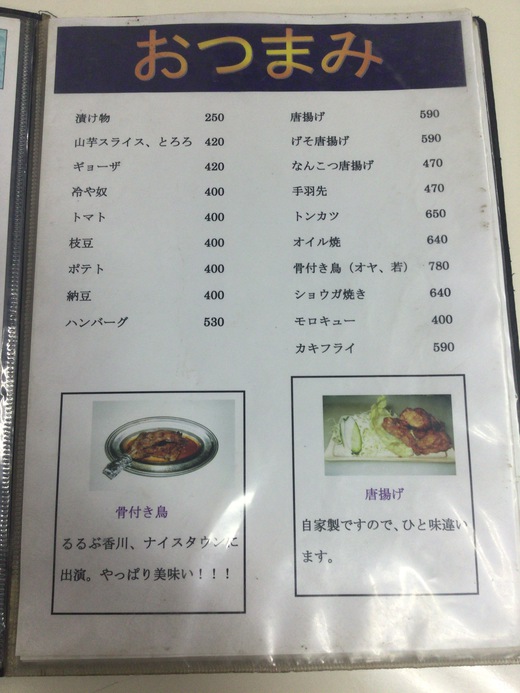 おつまみ
漬け物 250
山芋スライス、とろろ 420
ギョーザ 420
冷や奴 400
トマト 400
枝豆 400
ポテト 400
納豆 400
ハンバーグ 530
唐揚げ 590
げそ唐揚げ 590
なんこつ唐揚げ 470
手羽先 470
トンカツ 650
オイル焼 640
骨付き鳥（オヤ、若） 780
ショウガ焼き 640
モロキュー 400
カキフライ 590
骨付き鳥
るるぶ香川、ナイスタウンに
出演。やっぱり美味い！！！
唐揚げ
自家製ですので、ひと味違い
ます。